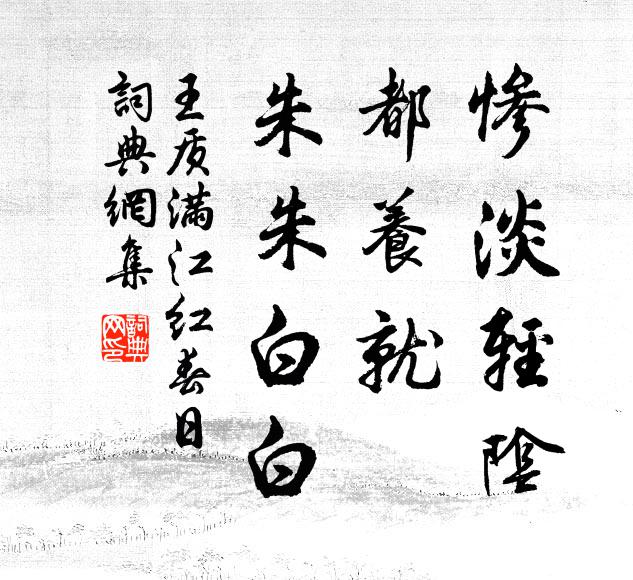 惨淡輕陰
都養就
朱朱白白
王质满江红春日
詞典網集
詞典
网印